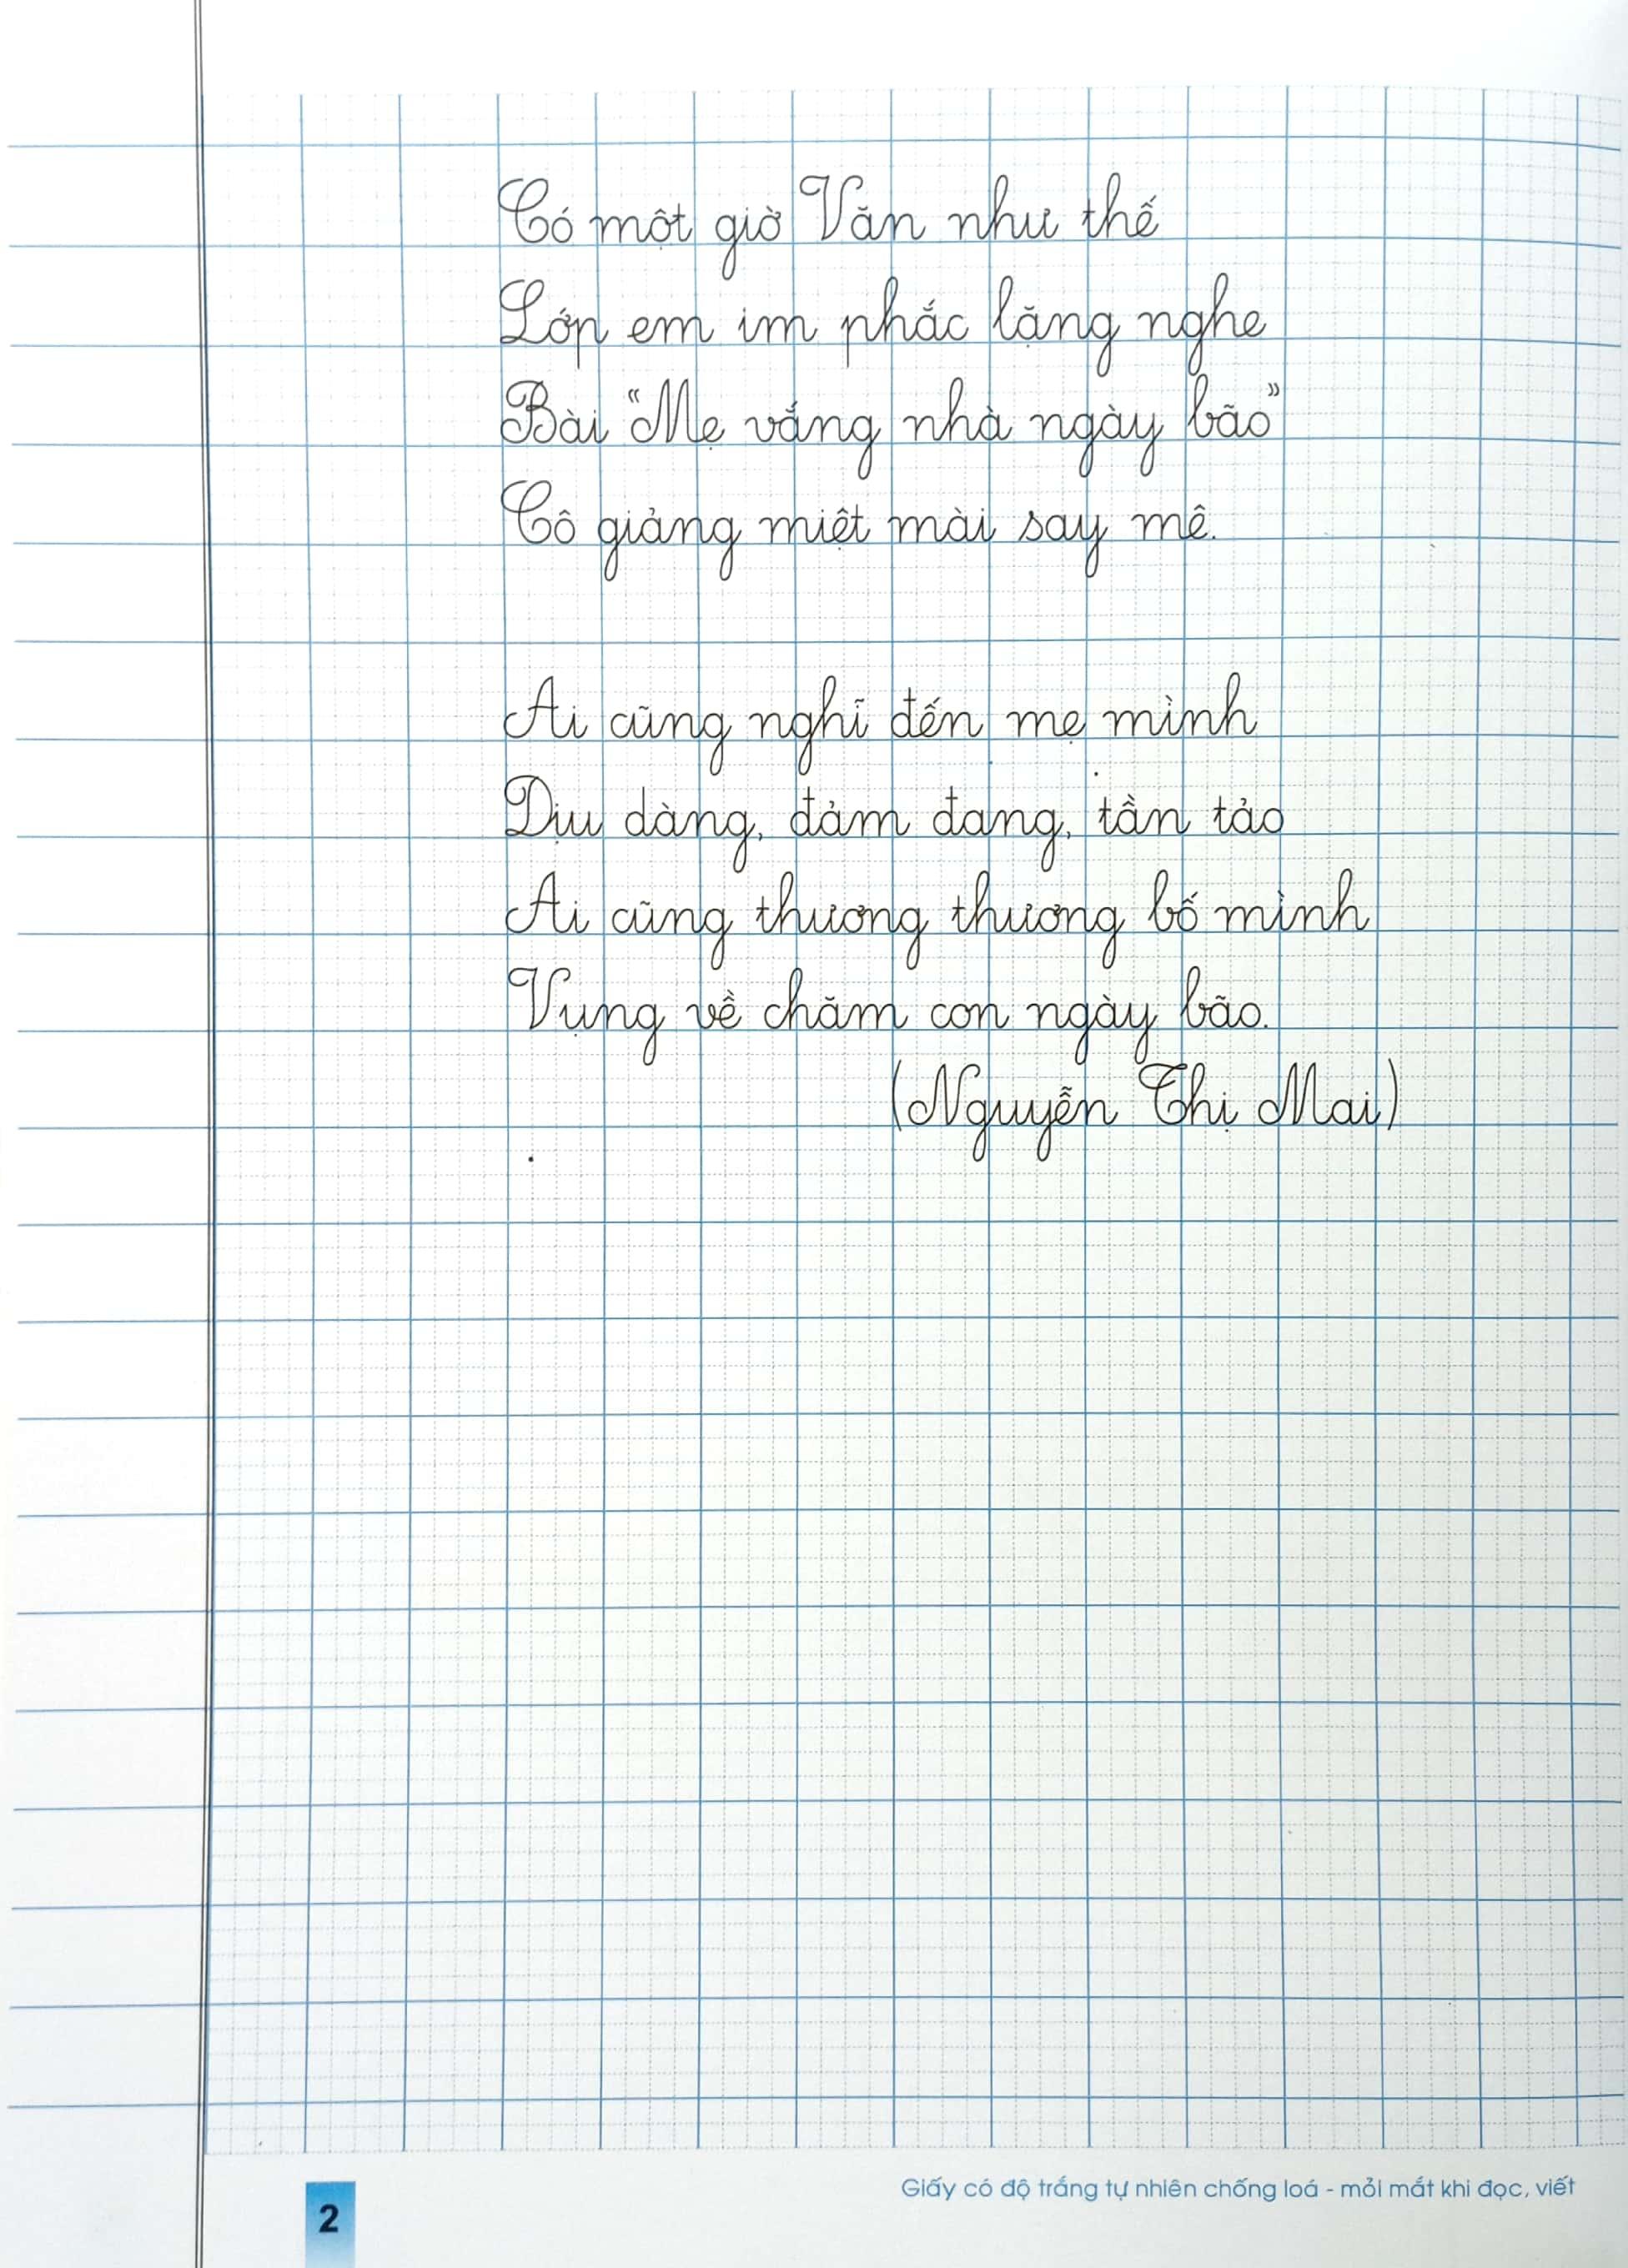 Có một giờ Văn như thế
Lớp em im phắc lặng nghe
Bài “Mẹ vắng nhà ngày bão”
Cô giảng miệt mài say mê.
Ai cũng nghĩ đến mẹ mình
Dịu dàng, đảm đang, tần tảo
Ai cũng thương thương bố mình
Vụng về chăm con ngày bão.
(Nguyễn Thị Mai)
Giấy có độ trắng tự nhiên chống loá - mỏi mắt khi đọc, viết
2